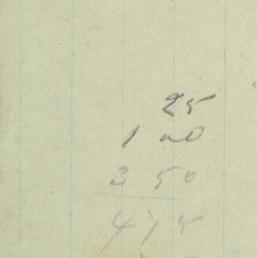 25
1 00
3 50
4 75